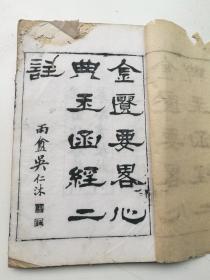 金匱要畧心
典玉函經二
註
吳仁沐